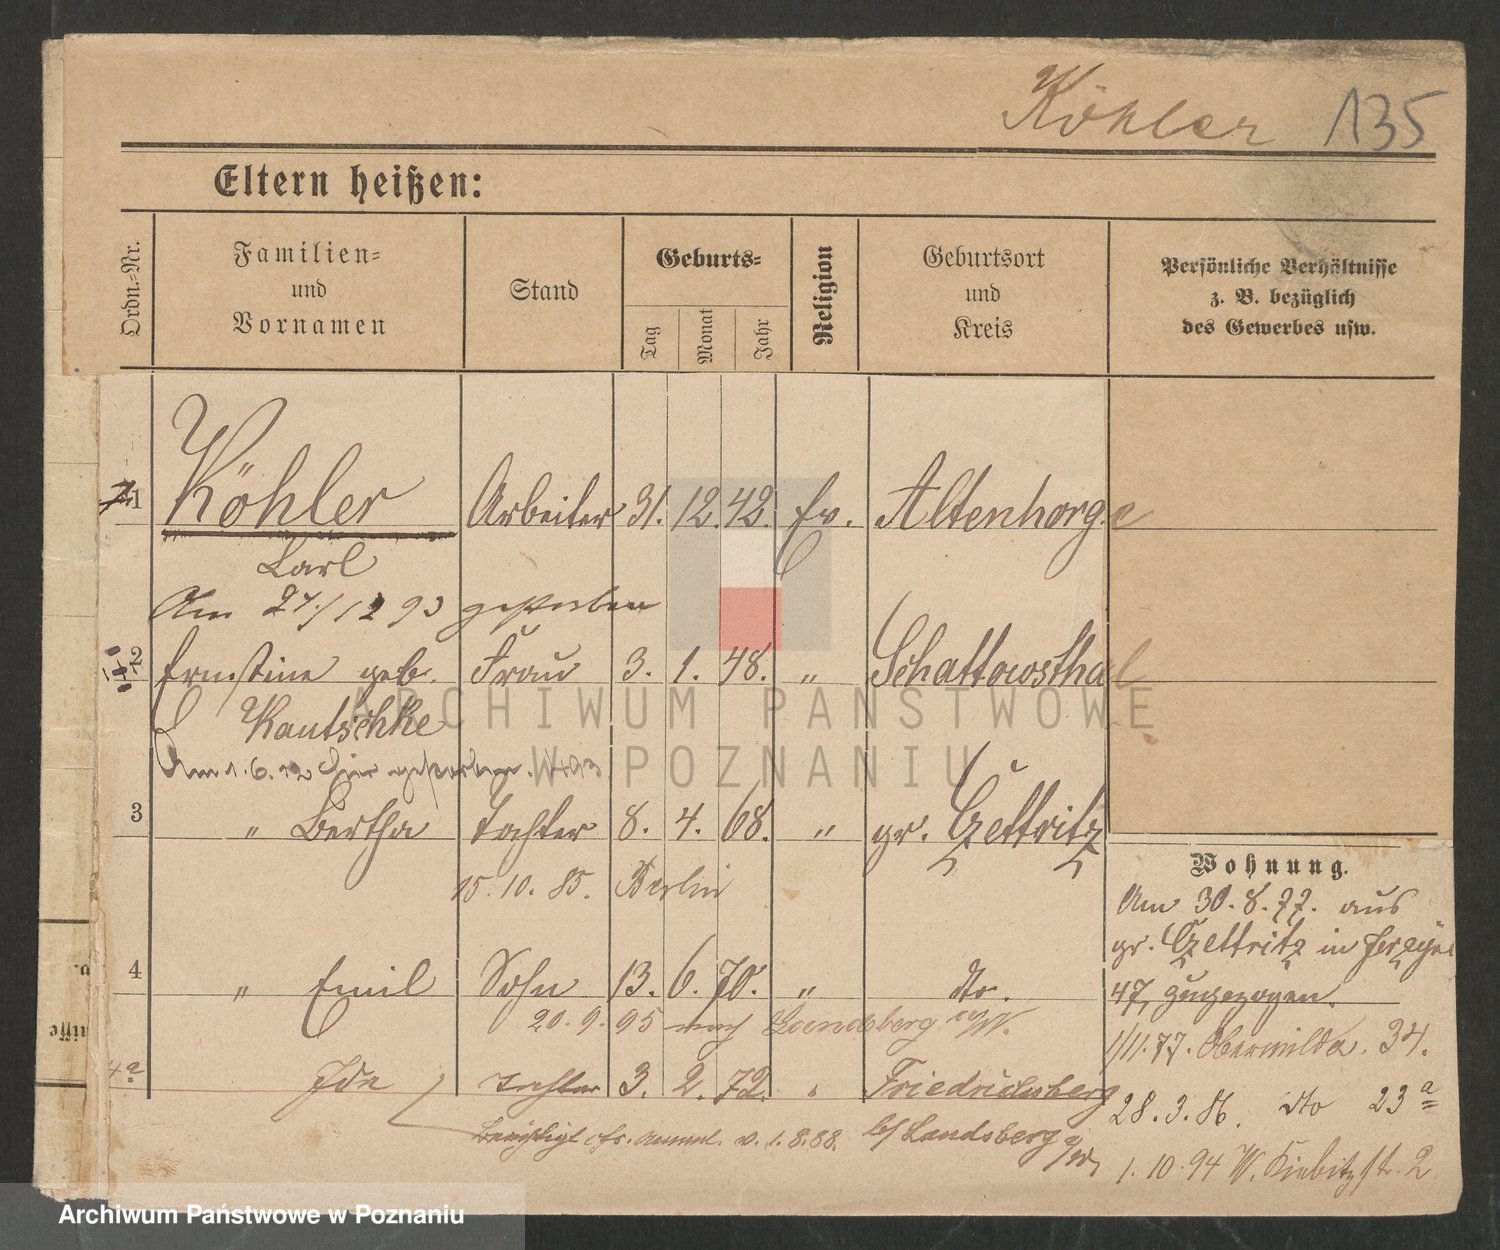 Köhler 135
Eltern heißen:
Ordn.-Nr.
Familien-
und
Vornamen
Stand
Geburts-
Tag
Monat
Jahr
Religion
Geburtsort
und
Kreis
Persönliche Verhältnisse
z. B. bezüglich
des Gewerbes usw.
1 Köhler Arbeiter 31. 12. 42. Ev. Altenhorge
Carl
Am 27/12 93 gestorben
2 Ernstine geb. Frau 3. 1. 48. " Schattowsthal
Kantschke
Am 1. 6. 12 hier gestorben.
3 " Bertha Tochter 8. 4. 68. " gr. Czettritz
15. 10. 85. Berlin
4 " Emil Sohn 13. 6. 70. " dto.
20. 9. 95 nach Landsberg a/W.
4a Ida Tochter 3. 2. 72. " Friedrichsberg
v. 1. 8. 88. b/Landsberg a/W.
Wohnung.
Am 30. 8. 77. aus
gr. Czettritz in
47, zugezogen.
1/11. 77. Oberwilda. 34.
28. 3. 86. dto 23 a
1. 10. 94 W. Kiebitzstr. 2
ARCHIWUM PAŃSTWOWE
W POZNANIU
Archiwum Państwowe w Poznaniu